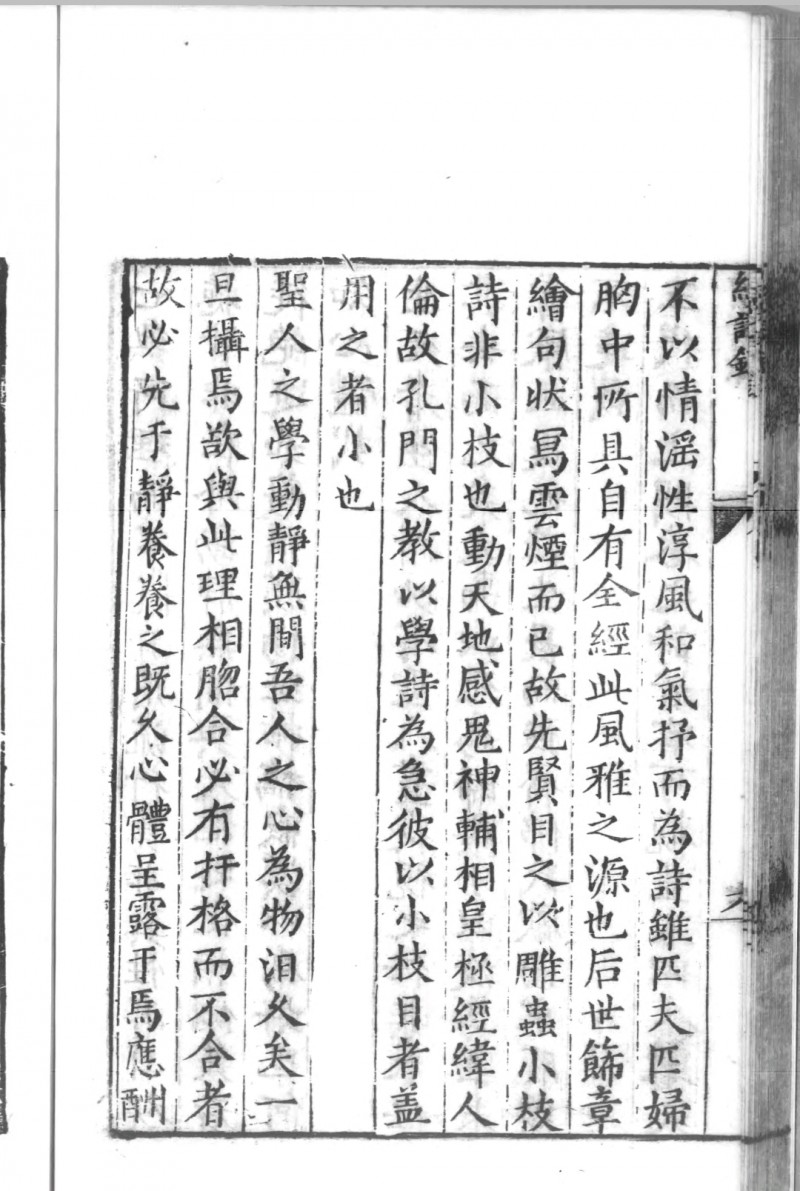 不以情滛性淳風和氣抒而為詩雖匹夫匹婦
胸中所具自有全經此風雅之源也后世飾章
繪句狀冩雲煙而已故先賢目之以雕蟲小技
詩非小枝也動天地感鬼神輔相皇極經緯人
倫故孔門之教以學詩為急彼以小枝目者盖
用之者小也
聖人之學動靜無間吾人之心為物汨久矣一
旦攝焉欲與此理相脗合必有扞格而不合者
故必先于靜養養之既久心體呈露于焉應酬